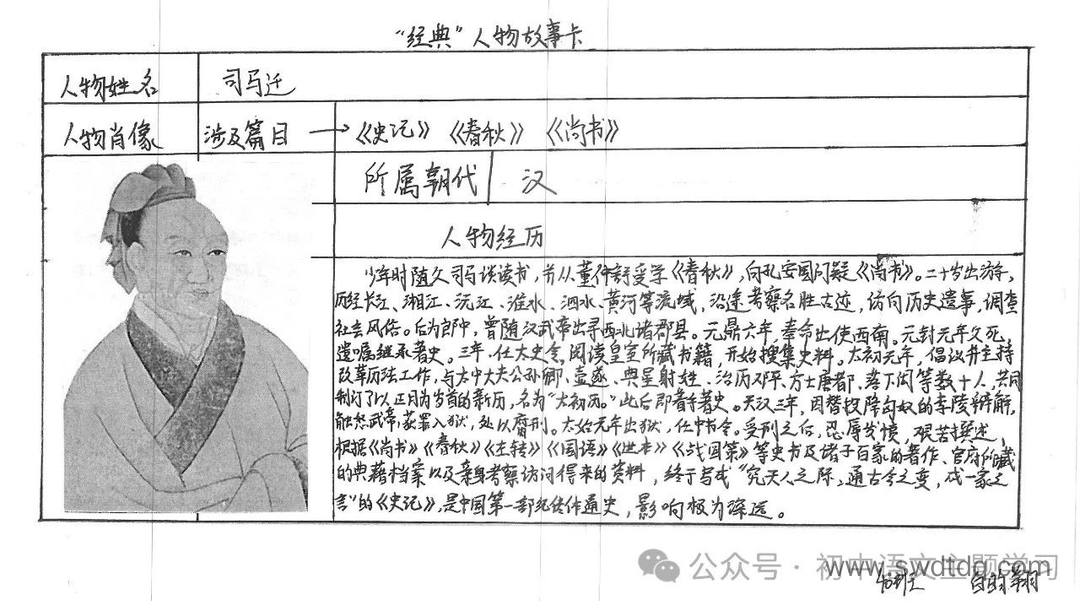 “经典”人物故事卡
人物姓名 司马迁
人物肖像 涉及篇目 → 《史记》《春秋》《尚书》
所属朝代 汉
人物经历
少年时随父司马谈读书,并从董仲舒受学《春秋》,向孔安国问疑《尚书》。二十岁出游,
历经长江、湘江、沅江、淮水、泗水、黄河等流域,沿途考察名胜古迹,访问历史遗事,调查
社会风俗。后为郎中,曾随汉武帝出寻西北诸郡县。元鼎六年,奉命出使西南。元封元年父死,
遗嘱继承著史。三年,任太史令,阅读皇室所藏书籍,开始搜集史料。太初元年,倡议并主持
改革历法工作,与太中大夫公孙卿、壶遂、典星射姓、治历邓平、方士唐都、落下闳等数十人,共同
制订了以正月为岁首的新历,名为“太初历。”此后即着手著史。天汉三年,因替投降匈奴的李陵辩解,
触怒武帝,获罪入狱,处以腐刑。太始元年出狱,任中书令。受刑之后,忍辱发愤,艰苦撰述,
根据《尚书》《春秋》《左转》《国语》《世本》《战国策》等史书及诸子百家的著作、官府所藏
的典藉档案以及亲身考察访问得来的资料,终于写成“究天人之际,通古今之变,成一家之
言”的《史记》,是中国第一部纪传体通史,影响极为深远。
公众号·初中语文主题学习
www.swdtdp.com